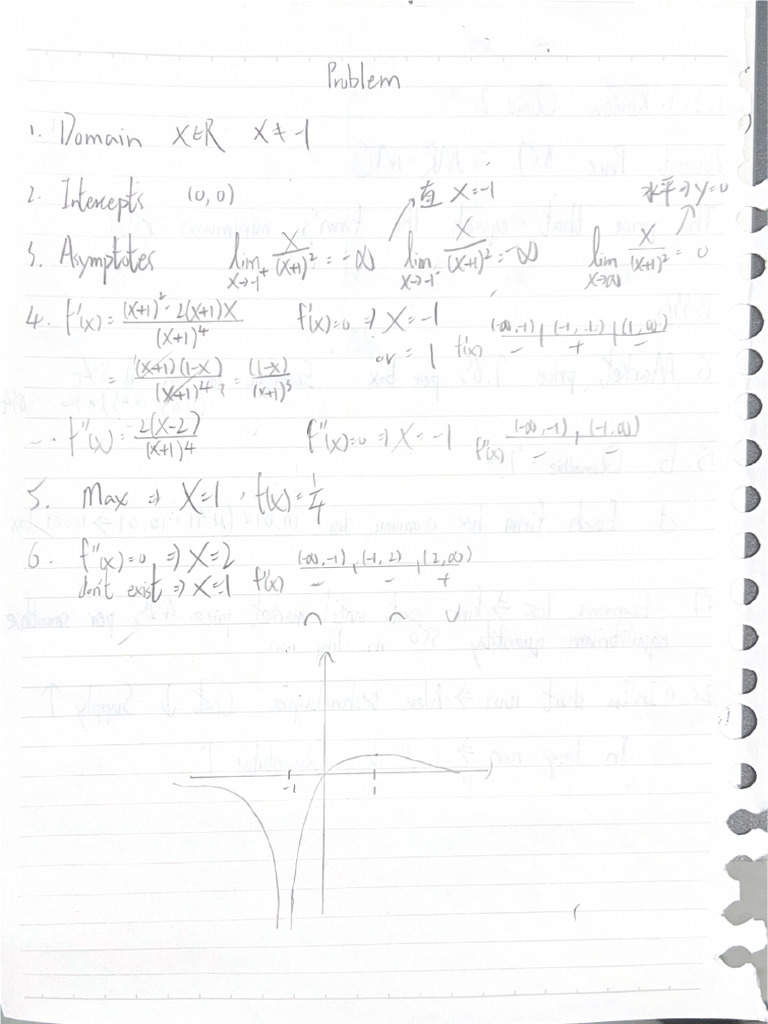 Problem
1. Domain X∈R X≠-1
2. Intercepts (0,0) 直 X=-1 水平 y=0
3. Asymptotes lim x→-1⁺ X/(X+1)² = -∞ lim x→-1⁻ X/(X+1)² = -∞ lim x→∞ X/(X+1)² = 0
4. f'(x) = ((X+1)² - 2(X+1)X)/(X+1)⁴ f'(x)=0 ⇒ X=-1 or = 1 f'(x) (-∞,-1) (-1, 1) (1,∞) - + -
= (X+1)(1-X)/(X+1)⁴ ³ = (1-X)/(X+1)³
f''(x) = 2(X-2)/(X+1)⁴ f''(x)=0 ⇒ X=-1 f''(x) (-∞,-1) (-1,∞) - -
5. Max ⇒ X=1, f(x)=1/4
6. f''(x)=0 ⇒ X=2 (-∞,-1) (-1,2) (2,∞)
don't exist ⇒ X=1 f'(x) - - +
∩ ∩ ∪
-1 1